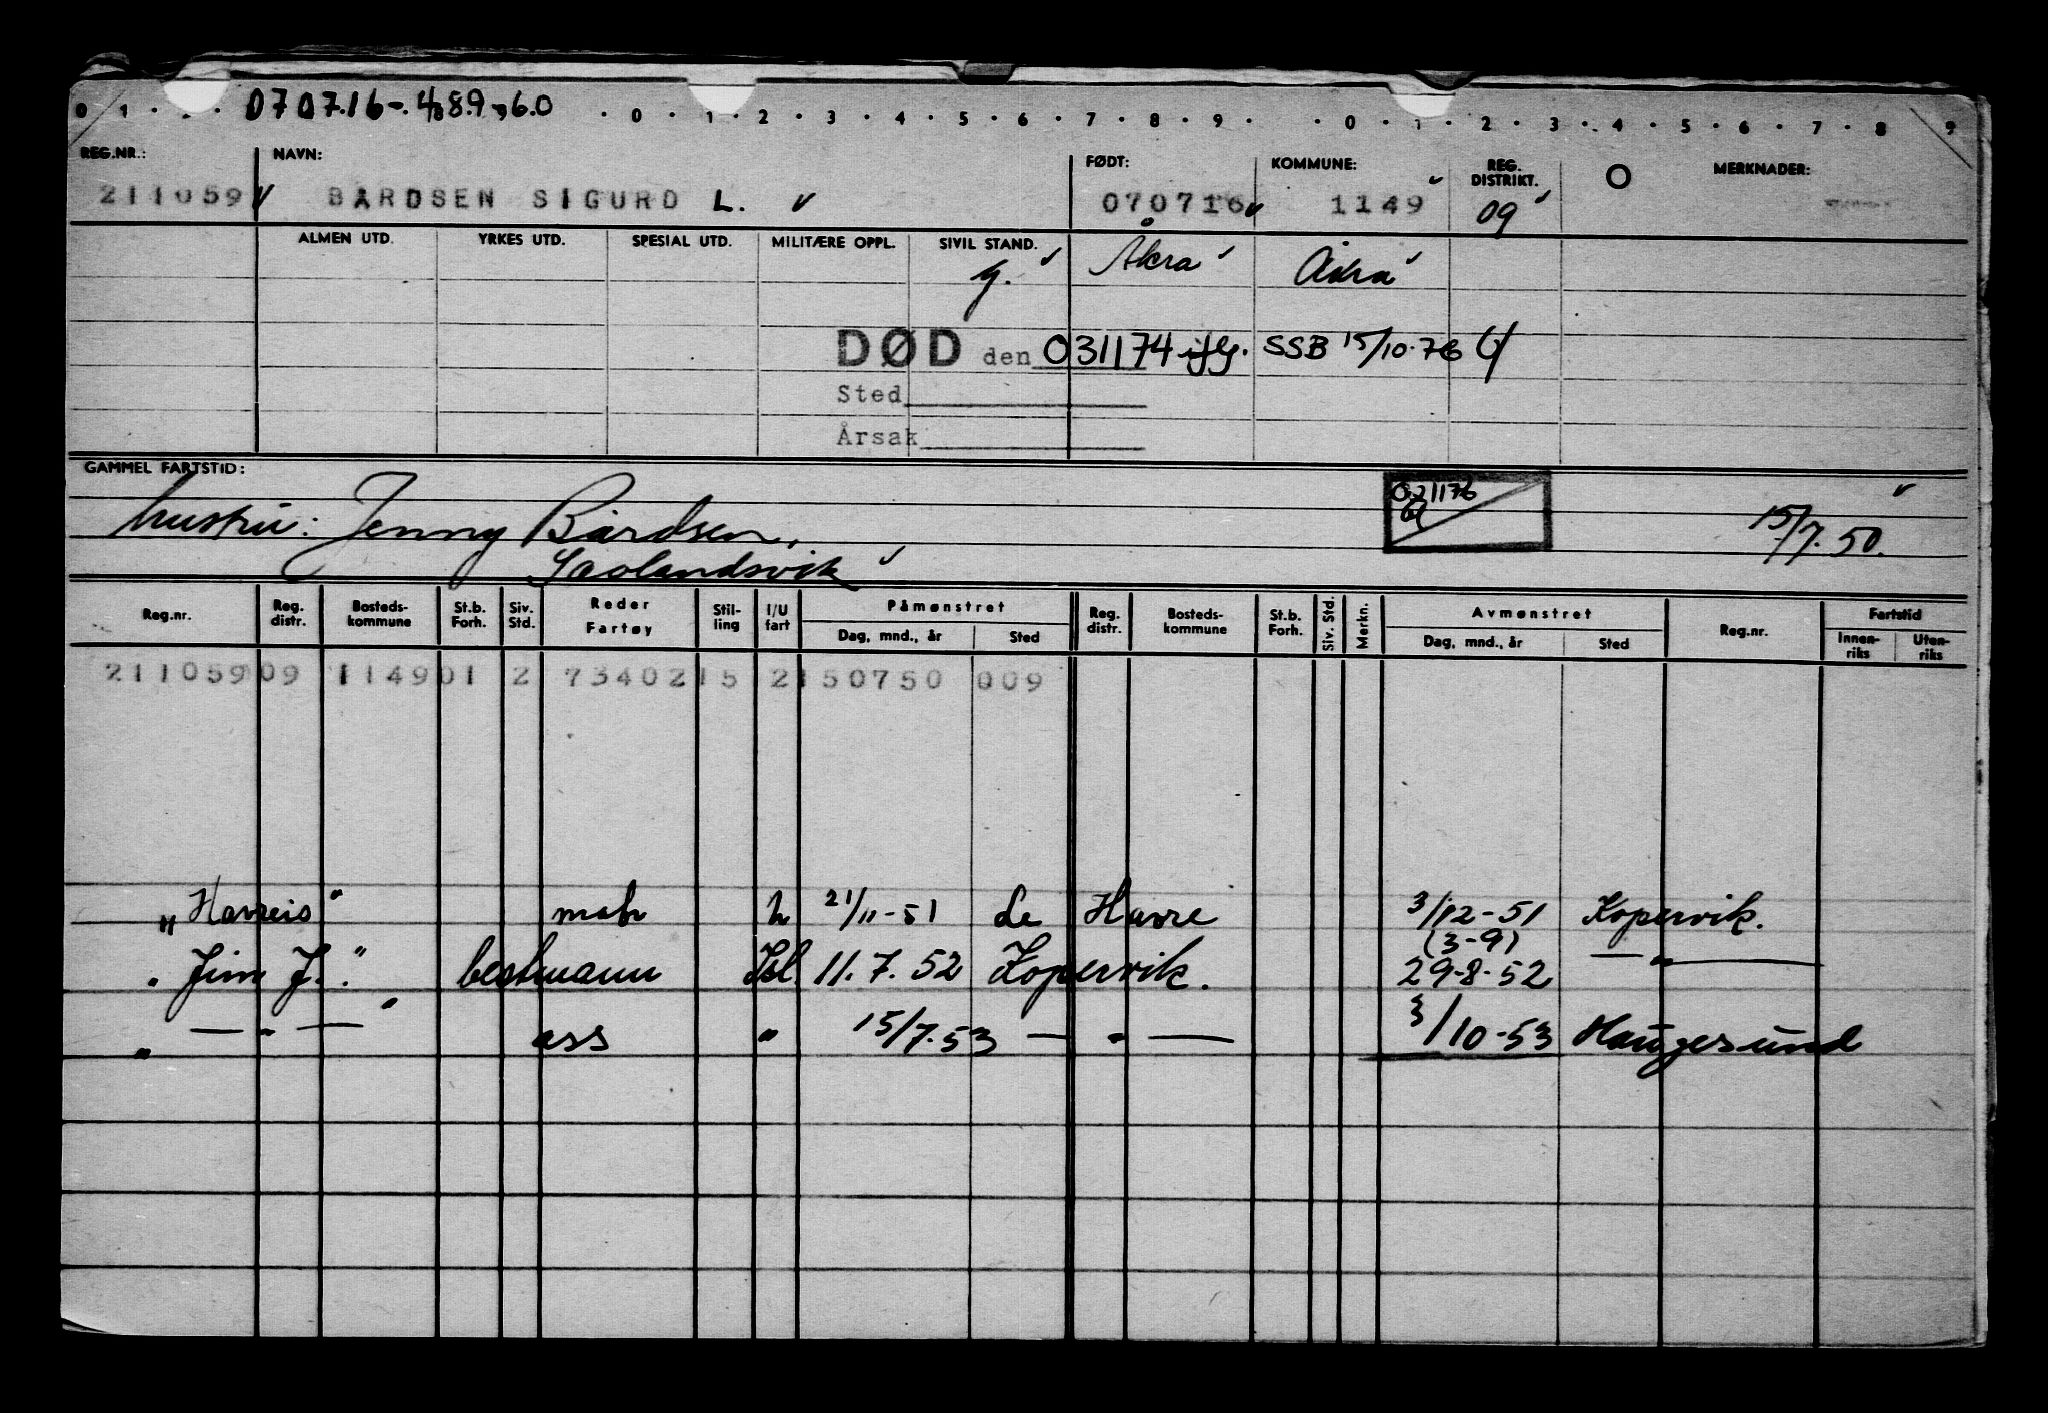 0 1 . . 070716-. 489 60 . 0 . 1 . 2 . 3 . 4 . 5 . 6 . 7 . 8 . 9 . . 0 . 1 . 2 . 3 . 4 . 5 . 6 . 7 . 8 9
REG.NR.: NAVN: FØDT: KOMMUNE: REG. DISTRIKT. O MERKNADER:
211059 BARDSEN SIGURD L. 070716 1149 09
ALMEN UTD. YRKES UTD. SPESIAL UTD. MILITÆRE OPPL. SIVIL STAND. Åkra Åkra
g.
DØD den 031174 iflg. SSB 15/10-76
Sted
Årsak
GAMMEL FARTSTID:
hustru: Jenny Bårdsen, 15/7.50.
Saolandsvik
Reg.nr. Reg. distr. Bosteds- kommune St.b. Forh. Siv. Std. Reder Fartøy Stil- ling I/U fart Påmønstret Dag, mnd., år Sted Reg. distr. Bosteds- kommune St.b. Forh. Siv. Std. Merkn. Avmønstret Dag, mnd., år Sted Reg.nr. Fartstid Innen- riks Uten- riks
211059 09 1149 01 2 73402 15 2 150750 009
„Havreis" matr u 21/11-51 Le Havre 3/12-51 Kopervik.
(3-9)
„Jim J." bestmann Isl. 11.7.52 Kopervik. 29-8-52 — " —
„ — " — " ass " 15/7.53 — " — 3/10-53 Haugesund